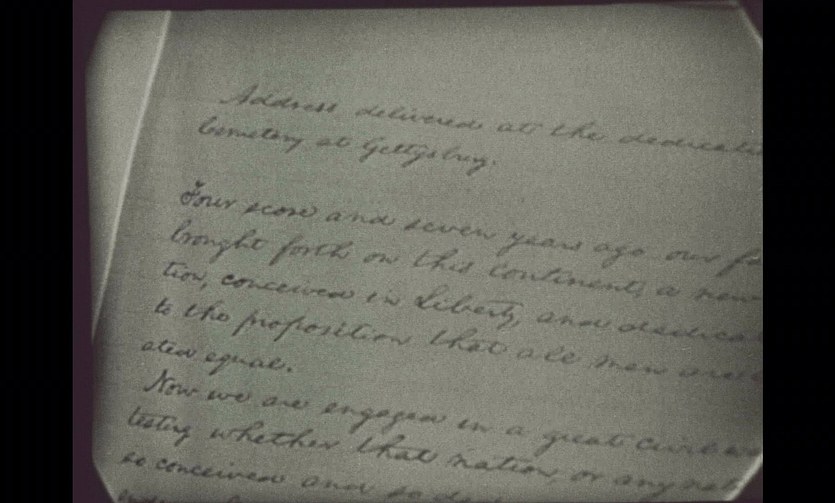 Address delivered at the dedicati
Cemetery at Gettysburg.
Four score and seven years ago our fa
brought forth on this continent, a new
tion, conceived in Liberty, and dedica
to the proposition that all men are c
ated equal.
Now we are engaged in a great civil wa
testing whether that nation, or any nat
so conceived and so ded